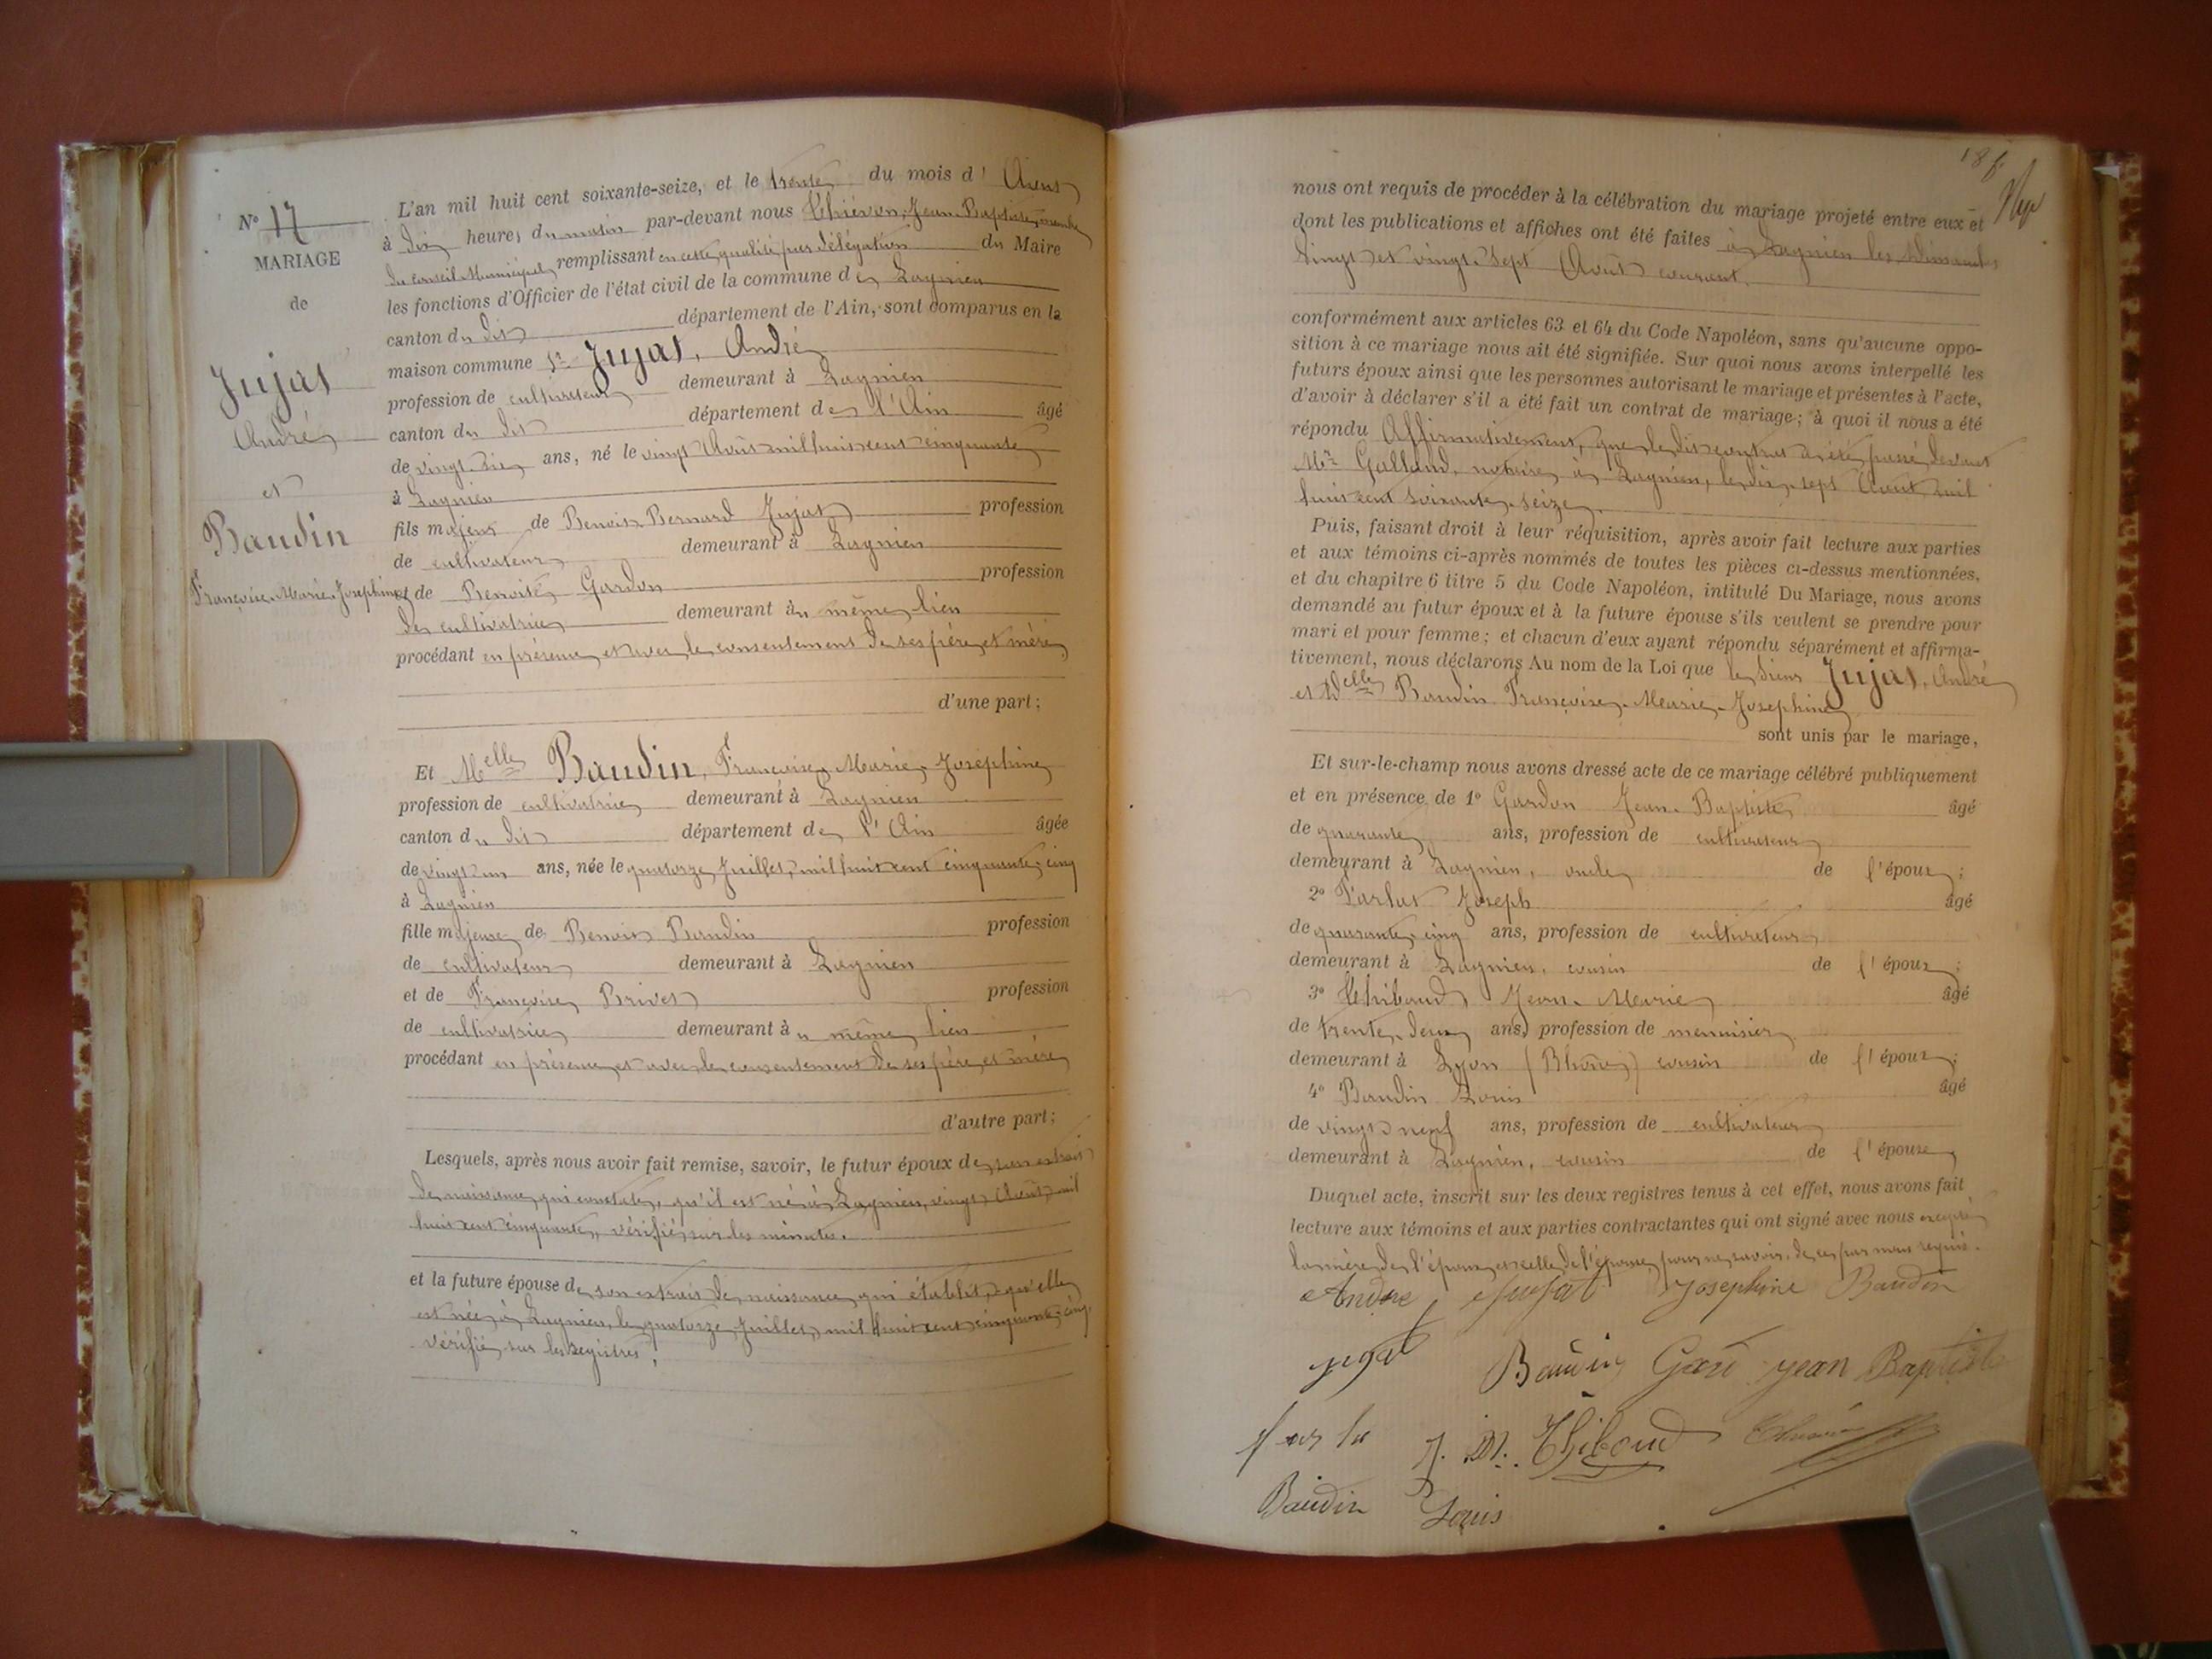 N° 17
MARIAGE
de
Jujat
André
et
Baudin
Françoise-Marie-Josephine
L'an mil huit cent soixante-seize, et le trente du mois d'Août
à dix heures du matin par-devant nous Thiévon, Jean-Baptiste, membre
du conseil Municipal, remplissant en cette qualité par délégation du Maire
les fonctions d'Officier de l'état civil de la commune de Lagnieu
canton du dit département de l'Ain, sont comparus en la
maison commune Sr Jujat, André
profession de cultivateur demeurant à Lagnieu
canton du dit département de l'Ain âgé
de vingt-six ans, né le vingt Août mil huit cent cinquante
à Lagnieu
fils majeur de Benoit Bernard Jujat profession
de cultivateur demeurant à Lagnieu
et de Benoite Gardon profession
de cultivatrice demeurant au même lieu
procédant en présence et avec le consentement de ses père et mère,
d'une part;
Et Melle Baudin, Françoise-Marie-Josephine
profession de cultivatrice demeurant à Lagnieu
canton du dit département de l'Ain âgée
de vingt-un ans, née le quatorze Juillet, mil huit cent cinquante-cinq
à Lagnieu
fille majeure de Benoit Baudin profession
de cultivateur demeurant à Lagnieu
et de Françoise Brivet profession
de cultivatrice demeurant au même lieu
procédant en présence et avec le consentement de ses père et mère
d'autre part;
Lesquels, après nous avoir fait remise, savoir, le futur époux de son extrait
de naissance qui constate, qu'il est né à Lagnieu, vingt Août mil
huit cent cinquante, vérifié sur les minutes.
et la future épouse de son extrait de naissance qui établit, qu'elle
est née à Lagnieu, le quatorze Juillet mil huit cent cinquante-cinq,
vérifié sur les registres;
nous ont requis de procéder à la célébration du mariage projeté entre eux et
dont les publications et affiches ont été faites à Lagnieu les Dimanches
vingt et vingt-sept Août courant.
conformément aux articles 63 et 64 du Code Napoléon, sans qu'aucune oppo-
sition à ce mariage nous ait été signifiée. Sur quoi nous avons interpellé les
futurs époux ainsi que les personnes autorisant le mariage et présentes à l'acte,
d'avoir à déclarer s'il a été fait un contrat de mariage; à quoi il nous a été
répondu Affirmativement, que le dit contrat a été passé devant
Me Galland, notaire à Lagnieu, le dix-sept Août mil
huit cent soixante-seize.
Puis, faisant droit à leur réquisition, après avoir fait lecture aux parties
et aux témoins ci-après nommés de toutes les pièces ci-dessus mentionnées,
et du chapitre 6 titre 5 du Code Napoléon, intitulé Du Mariage, nous avons
demandé au futur époux et à la future épouse s'ils veulent se prendre pour
mari et pour femme; et chacun d'eux ayant répondu séparément et affirma-
tivement, nous déclarons Au nom de la Loi que le Sieur Jujat, André
et Delle Baudin Françoise-Marie-Josephine
sont unis par le mariage,
Et sur-le-champ nous avons dressé acte de ce mariage célébré publiquement
et en présence de 1° Gardon Jean-Baptiste âgé
de quarante ans, profession de cultivateur
demeurant à Lagnieu, oncle de l'époux;
2° Parlat Joseph âgé
de quarante-cinq ans, profession de cultivateur
demeurant à Lagnieu, cousin de l'époux;
3° Thibaud Jean-Marie âgé
de trente-deux ans, profession de menuisier
demeurant à Lyon (Rhône) cousin de l'époux;
4° Baudin Louis âgé
de vingt-neuf ans, profession de cultivateur
demeurant à Lagnieu, cousin de l'épouse
Duquel acte, inscrit sur les deux registres tenus à cet effet, nous avons fait
lecture aux témoins et aux parties contractantes qui ont signé avec nous excepté
la mère de l'époux et celle de l'épouse, pour ne savoir, de ce par nous requis.
Andre Jujat Josephine Baudin
Baudin Jean Baptiste
J. M. Thiboud
Baudin Louis